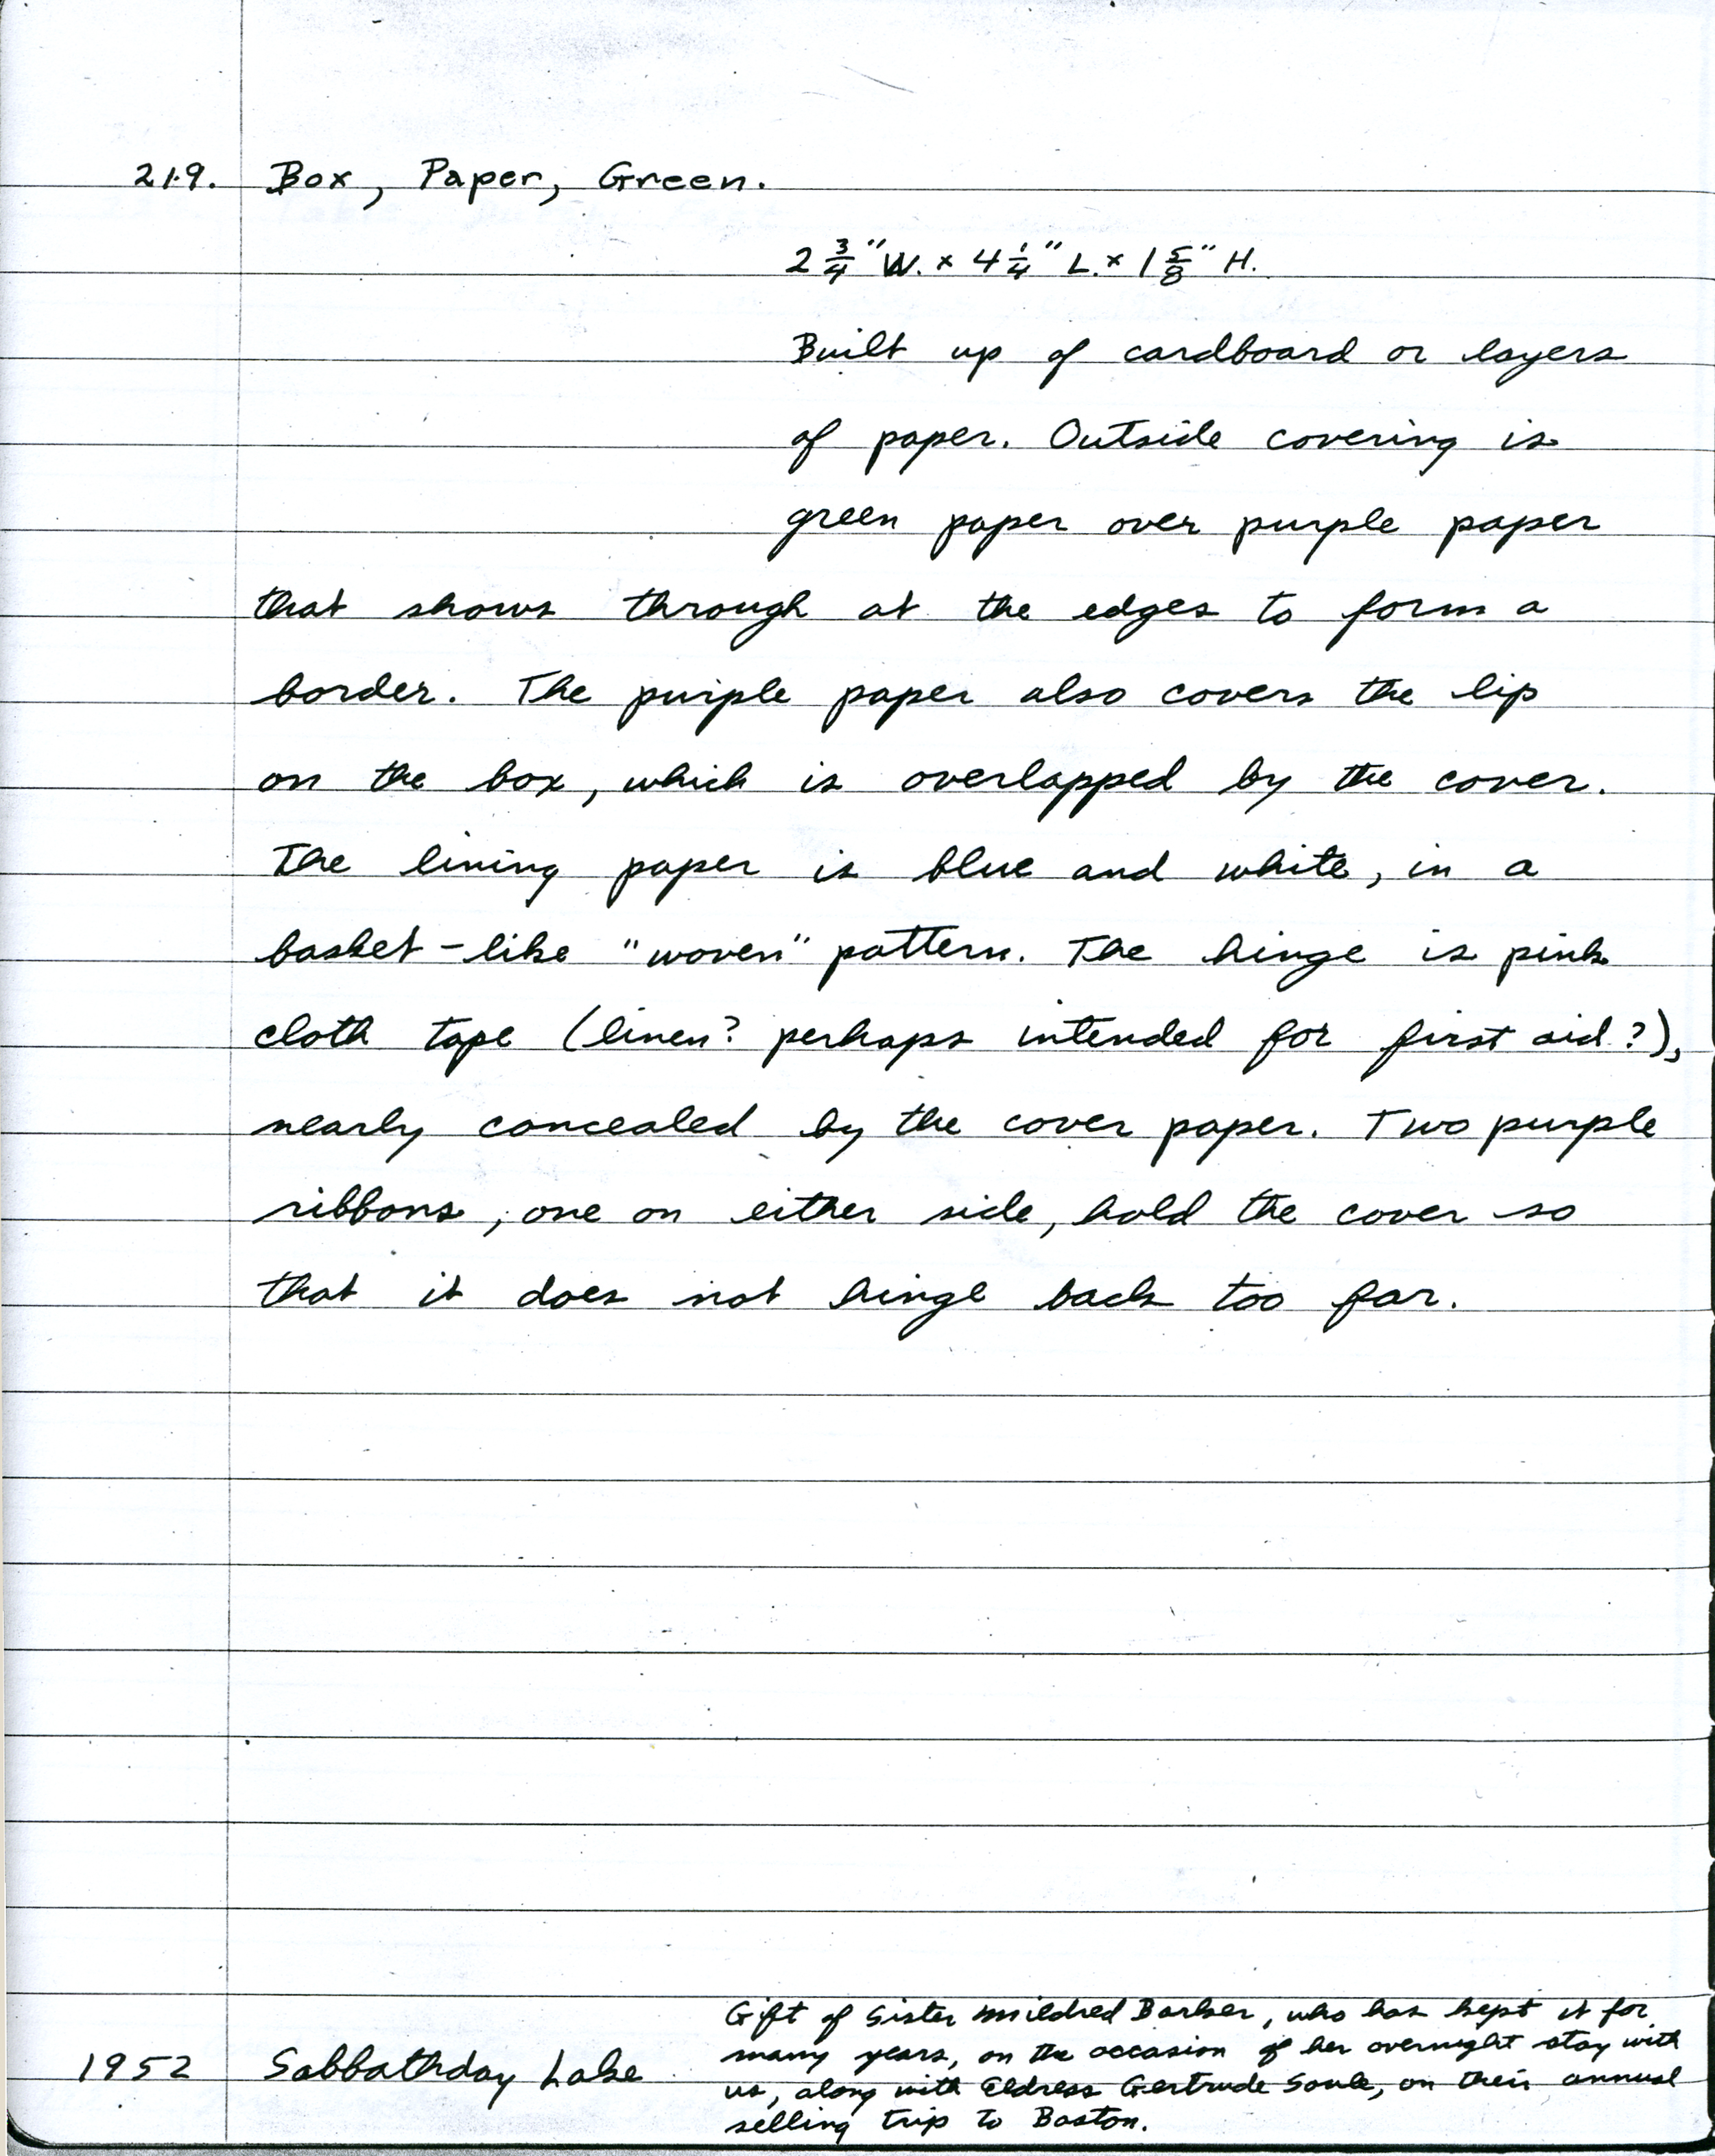 219. Box, Paper, Green.
2 3/4" W. x 4 1/4" L. x 1 5/8" H.
Built up of cardboard or layers
of paper. Outside covering is
green paper over purple paper
that shows through at the edges to form a
border. The purple paper also covers the lip
on the box, which is overlapped by the cover.
The lining paper is blue and white, in a
basket-like "woven" pattern. The hinge is pink
cloth tape (linen? perhaps intended for first aid?),
nearly concealed by the cover paper. Two purple
ribbons, one on either side, hold the cover so
that it does not hinge back too far.
1952 Sabbathday Lake
Gift of Sister Mildred Barker, who has kept it for
many years, on the occasion of her overnight stay with
us, along with Eldress Gertrude Soule, on their annual
selling trip to Boston.